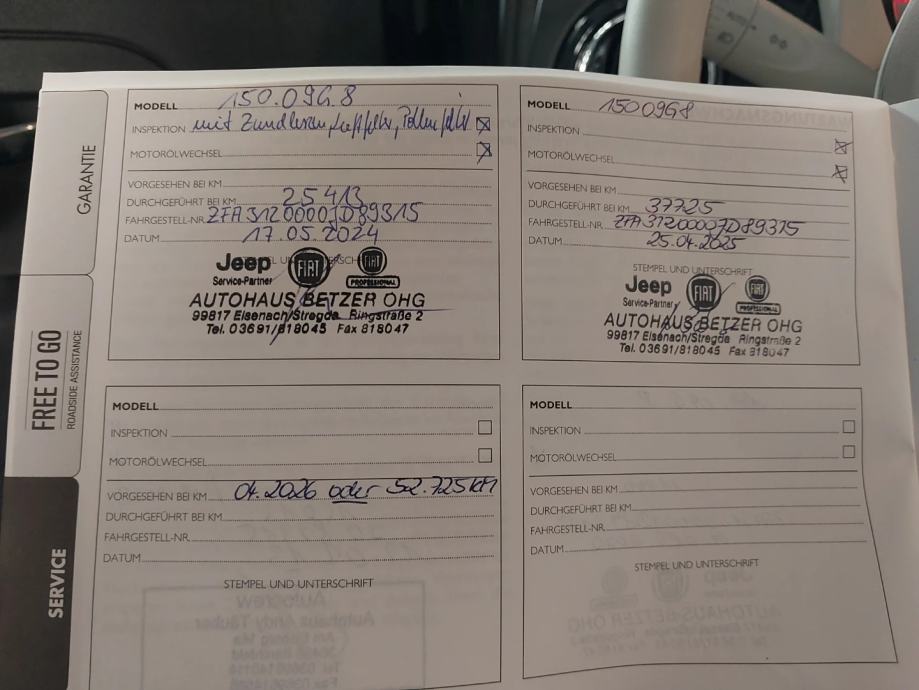 GARANTIE
FREE TO GO
ROADSIDE ASSISTANCE
SERVICE
MODELL 150.09G.8
INSPEKTION mit Zündkerzen, Luftfilter, Pollenfilter ☒
MOTORÖLWECHSEL ☒
VORGESEHEN BEI KM
DURCHGEFÜHRT BEI KM 25413
FAHRGESTELL-NR. ZFA3120000JD89315
DATUM 17.05.2024
Jeep FIAT FIAT
Service-Partner PROFESSIONAL
AUTOHAUS BETZER OHG
99817 Eisenach/Stregda Ringstraße 2
Tel. 03691/818045 Fax 818047
MODELL 15009G8
INSPEKTION ☒
MOTORÖLWECHSEL ☒
VORGESEHEN BEI KM
DURCHGEFÜHRT BEI KM 37725
FAHRGESTELL-NR. ZFA3120000JD89315
DATUM 25.04.2025
STEMPEL UND UNTERSCHRIFT
Jeep FIAT FIAT
Service-Partner PROFESSIONAL
AUTOHAUS BETZER OHG
99817 Eisenach/Stregda Ringstraße 2
Tel. 03691/818045 Fax 818047
MODELL
INSPEKTION ☐
MOTORÖLWECHSEL ☐
VORGESEHEN BEI KM 04.2026 oder 52.725 KM
DURCHGEFÜHRT BEI KM
FAHRGESTELL-NR.
DATUM
STEMPEL UND UNTERSCHRIFT
MODELL
INSPEKTION ☐
MOTORÖLWECHSEL ☐
VORGESEHEN BEI KM
DURCHGEFÜHRT BEI KM
FAHRGESTELL-NR.
DATUM
STEMPEL UND UNTERSCHRIFT